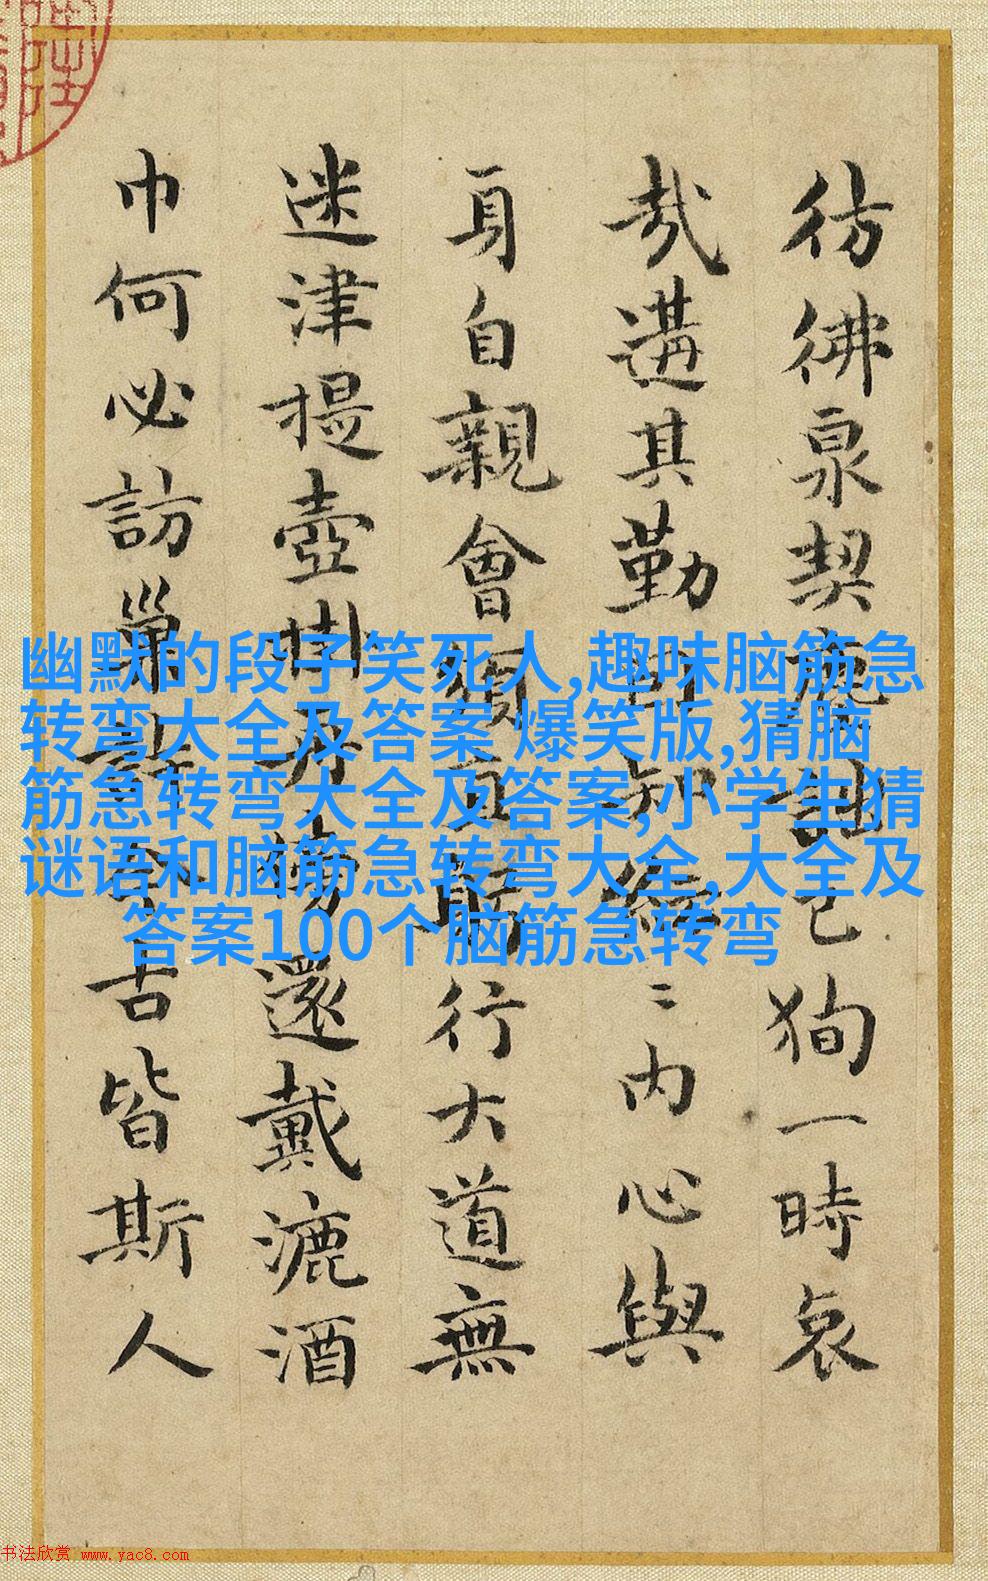 彷彿泉契已狥一時哀
哉遘其勤知〻内心與
身自親會須直行大道無
迷津提壺掛還戴漉酒
巾何必訪巢許古皆斯人
幽默的段子笑死人,趣味脑筋急
转弯大全及答案 爆笑版,猜脑
筋急转弯大全及答案,小学生猜
谜语和脑筋急转弯大全,大全及
答案100个脑筋急转弯
书法欣赏 www.yac8.com